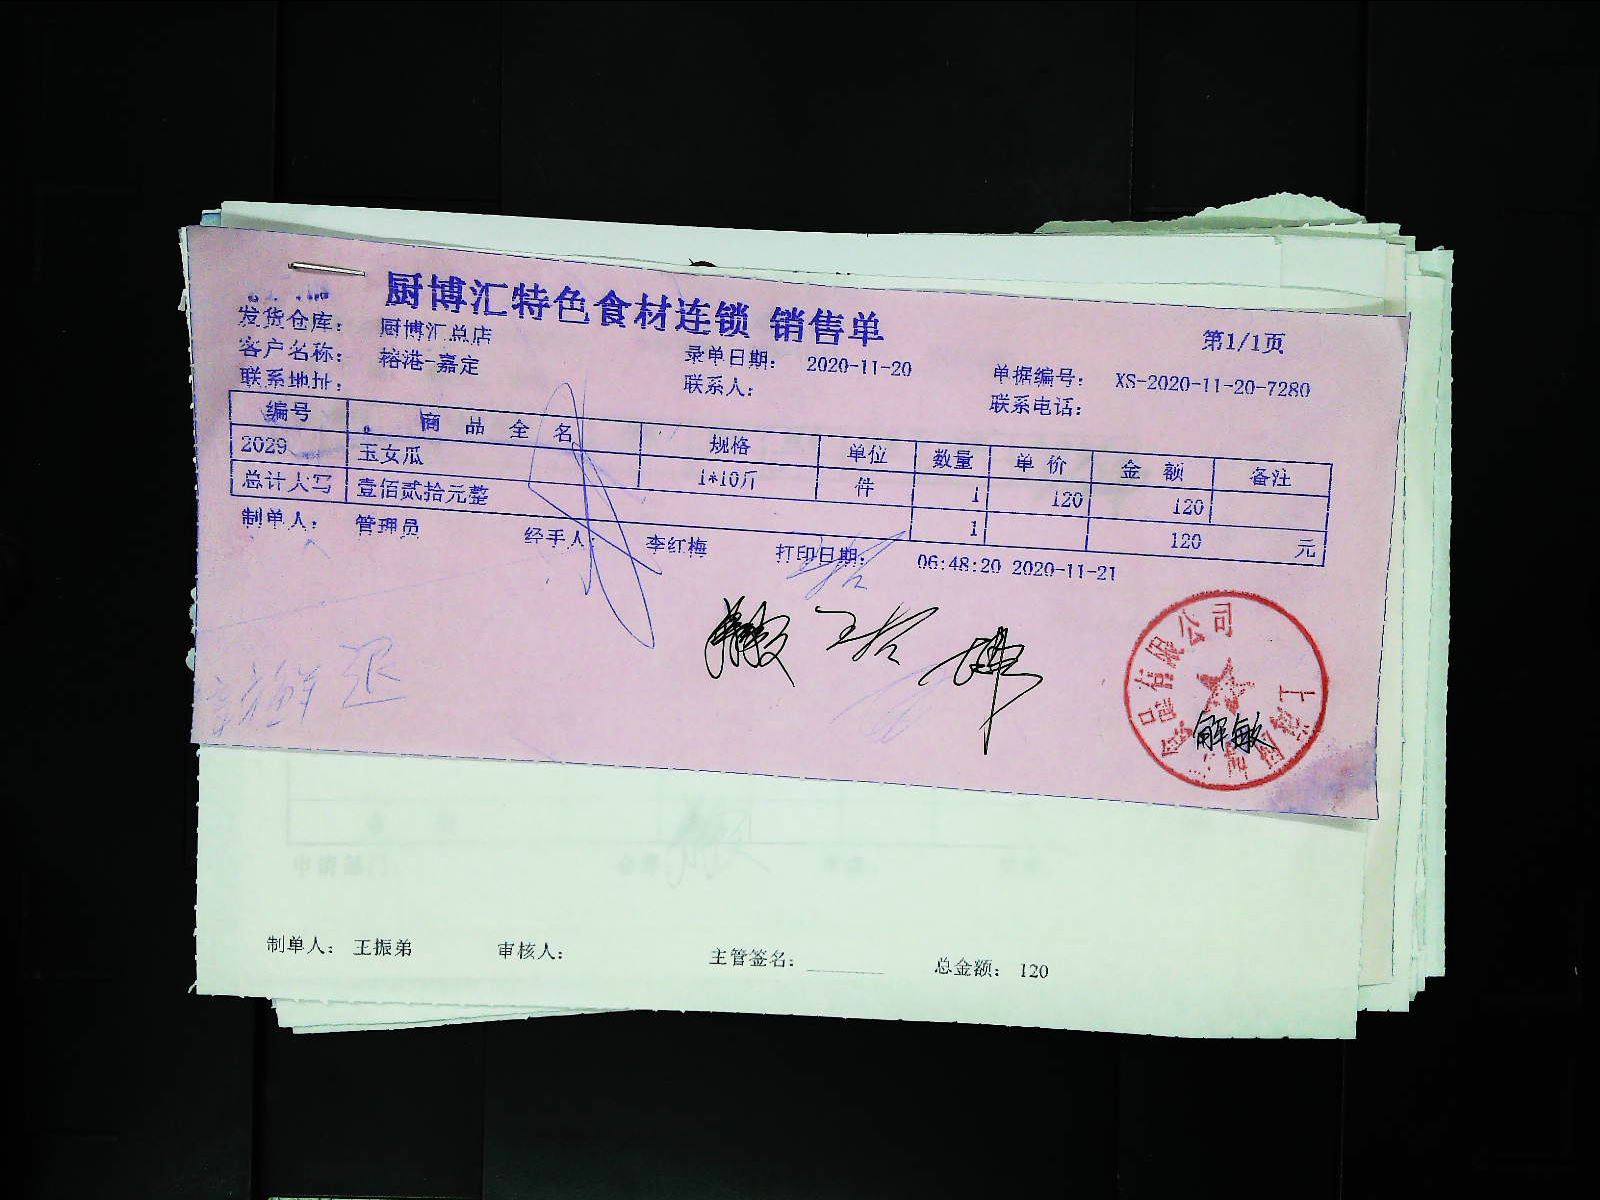 厨博汇特色食材连锁 销售单
第1/1页
发货仓库： 厨博汇总店
客户名称： 榕港-嘉定 录单日期： 2020-11-20 单据编号： XS-2020-11-20-7280
联系地址： 联系人： 联系电话：
编号 商品全名 规格 单位 数量 单价 金额 备注
2029 玉女瓜 1*10斤 件 1 120 120
总计大写 壹佰贰拾元整 1 120 元
制单人： 管理员 经手人： 李红梅 打印日期： 06:48:20 2020-11-21
品有限公司
上海
解敏
制单人： 王振弟 审核人： 主管签名： 总金额： 120